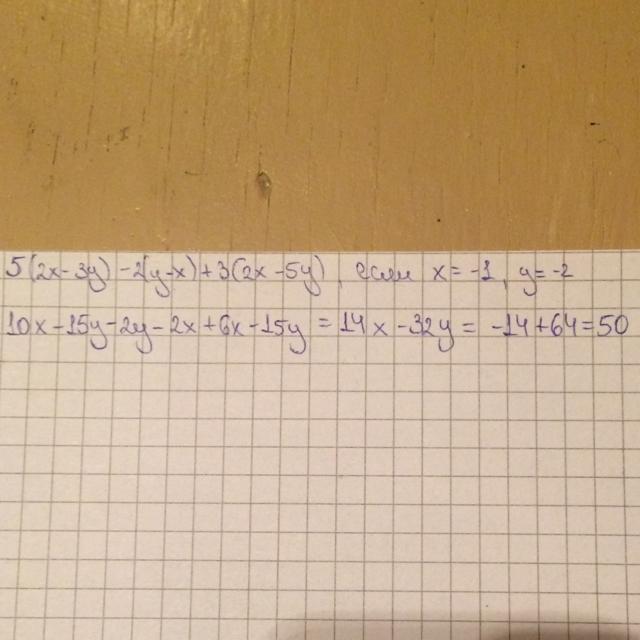 5(2x-3y)-2(y-x)+3(2x-5y), если x=-1, y=-2
10x-15y-2y-2x+6x-15y=14x-32y=-14+64=50